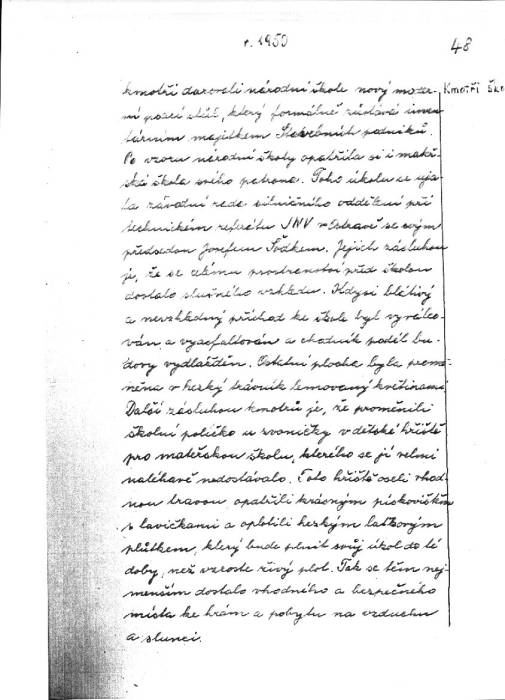 r. 1950
48
kmotři darovali národní škole nový moder-
Kmotři ško
ní psací stůl, který formálně zůstává inven
tárním majetkem Stavebních podniků.
Po vzoru národní školy opatřila si i mateř-
ská škola svého patrona. Toho úkolu se uja-
la závodní rada silničního oddělení při
technickém referátu JNV v Ostravě se svým
předsedou Josefem Sódkem. Jejich zásluhou
je, že se celému prostranství před školou
dostalo slušného vzhledu. Kdysi blátivý
a nevzhledný příchod ke škole byl vyválco-
ván a vyasfaltován a chodník podél bu-
dovy vydlážděn. Ostatní plocha byla promě-
něna v hezký trávník lemovaný květinami.
Další zásluhou kmotrů je, že proměnili
školní políčko u zvoničky v dětské hřiště
pro mateřskou školu, kterého se jí velmi
naléhavě nedostávalo. Toto hřiště oseli vhod-
nou travou opatřili krásným pískovištěm
s lavičkami a oplotili hezkým laťkovým
plůtkem, který bude plnit svůj úkol do té
doby, než vzroste živý plot. Tak se těm nej-
menším dostalo vhodného a bezpečného
místa ke hrám a pobytu na vzduchu
a slunci.